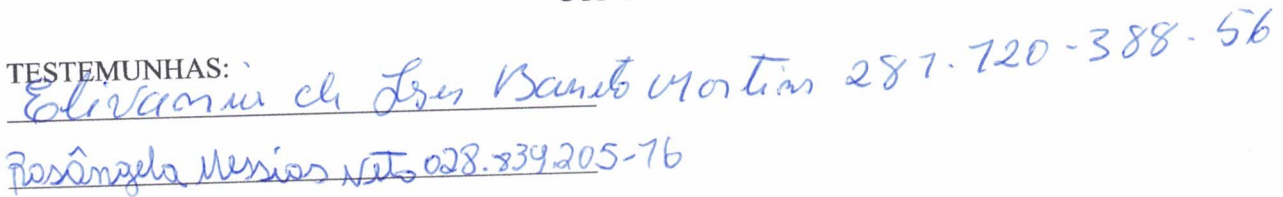 TESTEMUNHAS:
Elivania de Jesus Barreto Martins 287.720-388-56
Rosângela Messias Neto 028.839.205-76